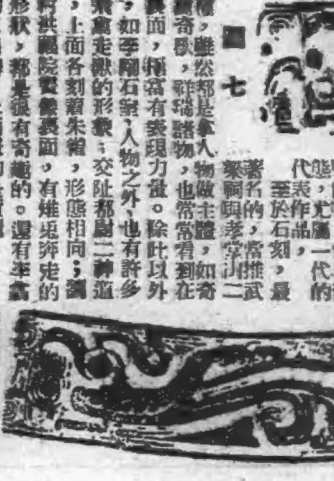 態，尤屬一代的
代表作品，
至於石刻，最
著名的，當推武
梁祠與孝堂山二
圖七
，雖然都是拿人物做主體，如奇
禽奇獸，祥瑞諸物，也常常看到在
裏面，極富有表現力量。除此以外
，如李剛石室，人物之外，也有許多
飛禽走獸的形象；交阯都尉二神道
，上面各刻着朱雀，形態相同；劉
村洪福院畫像裏面，有雉兔奔走的
形狀，都是很有奇趣的。還有李翕